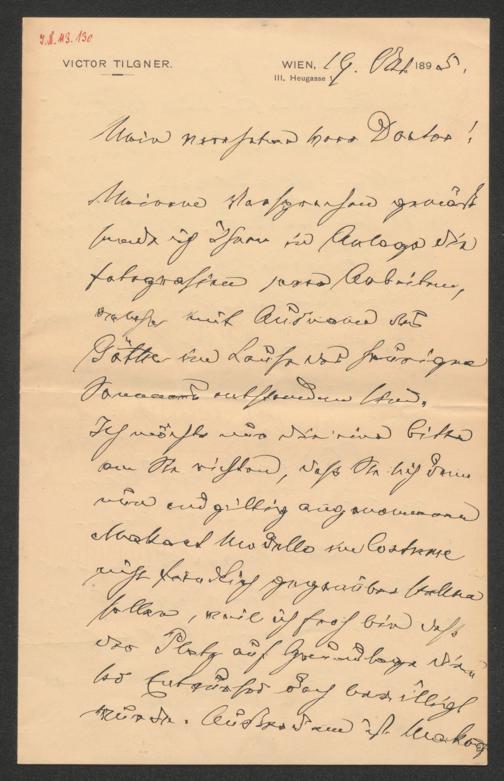 I.N. 113.130
VICTOR TILGNER.
WIEN, 19. Okt. 1895.
III, Heugasse 1
Mein verehrter Herr Doctor!
Meinem Versprechen gemäß
sende ich Ihnen in Anlage die
Fotografien jener Arbeiten,
welche mit Ausnahme des
Göthe im Laufe des heurigen
Sommers entstanden sind.
Ich möchte nur die eine Bitte
an Sie richten, daß Sie sich dem
nun endgiltig angenommenen
Makart Modelle im Costume
nicht feindlich gegenüber stellen
sollen, weil ich froh bin daß
der Platz auf Grundlage
Entwurfes doch bewilligt
wurde. Außerdem ist Makart